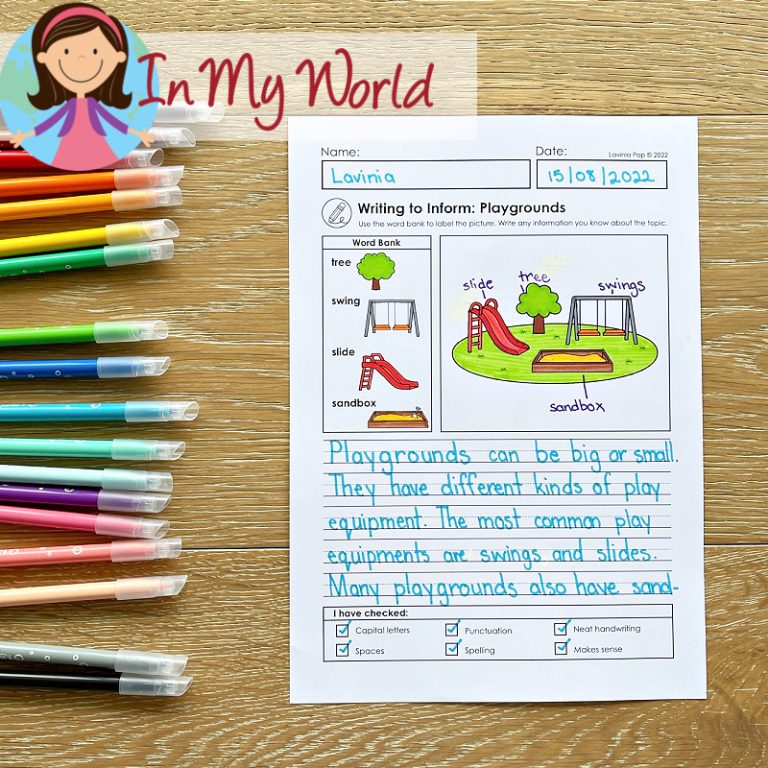 In My World
Name:
Date:
Lavinia Pop © 2022
Lavinia
15/08/2022
Writing to Inform: Playgrounds
Use the word bank to label the picture. Write any information you know about the topic.
Word Bank
tree
swing
slide
sandbox
slide
tree
swings
sandbox
Playgrounds can be big or small.
They have different kinds of play
equipment. The most common play
equipments are swings and slides.
Many playgrounds also have sand-
I have checked:
Capital letters
Punctuation
Neat handwriting
Spaces
Spelling
Makes sense